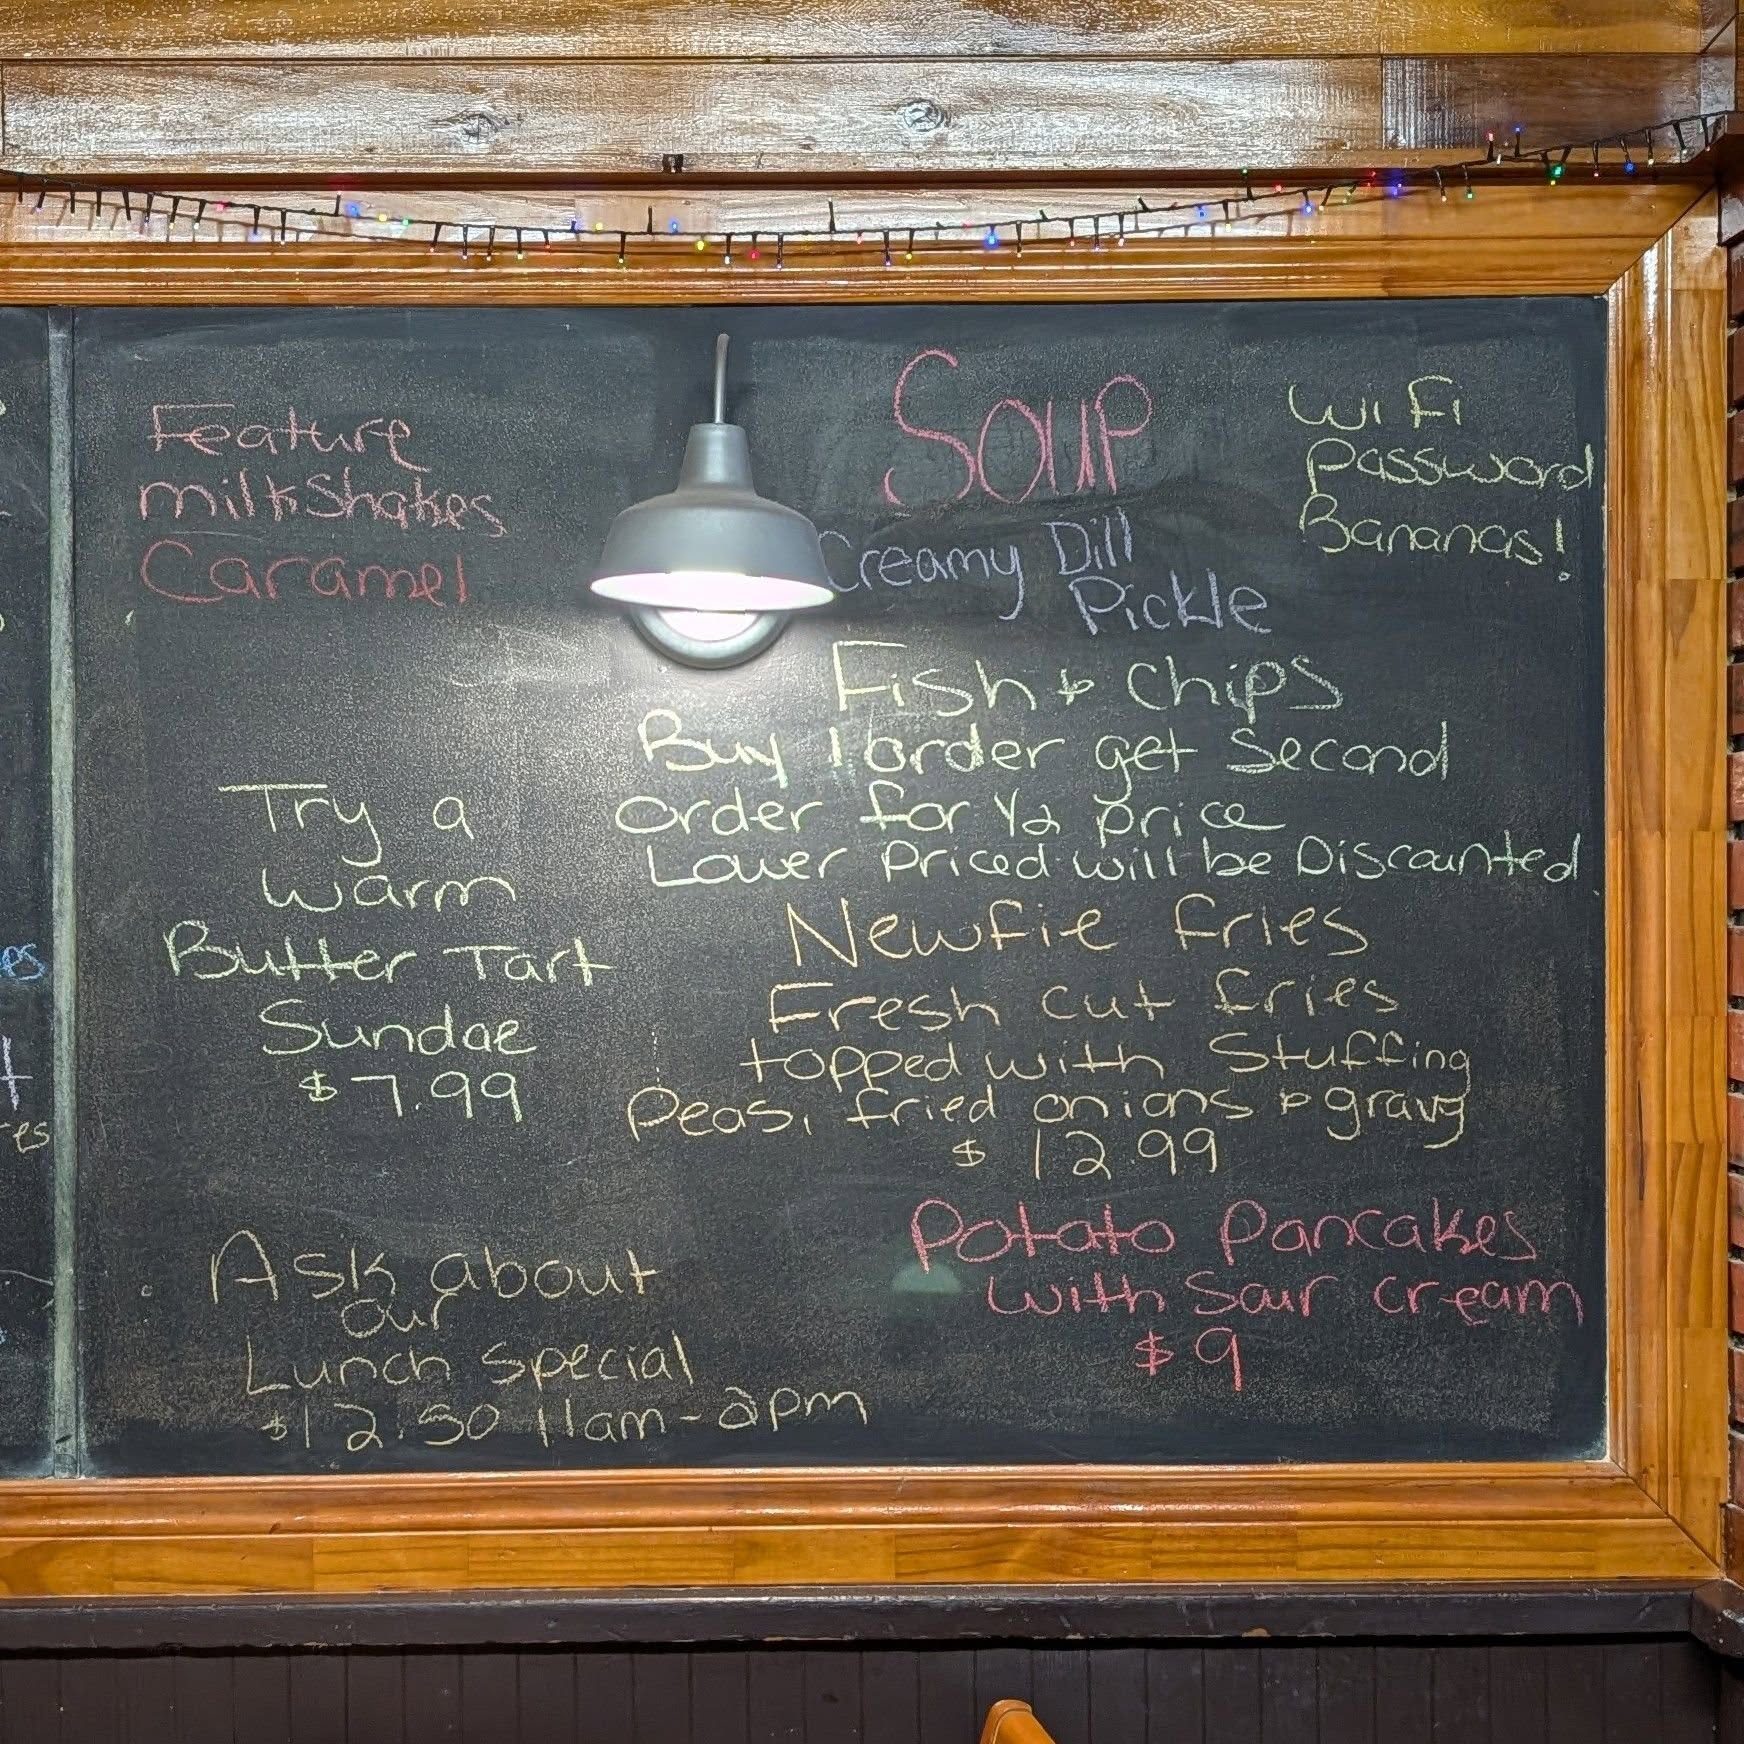 Feature
milkshakes
Caramel
Try a
warm
Butter Tart
Sundae
$7.99
Ask about
our
Lunch special
$12.50 11am-2pm
Soup
Creamy Dill
Pickle
WiFi
Password
Bananas!
Fish & Chips
Buy 1 order get second
order for 1/2 price
Lower priced will be Discounted.
Newfie fries
Fresh cut fries
topped with Stuffing
Peas, fried onions & gravy
$12.99
Potato Pancakes
with sour cream
$9